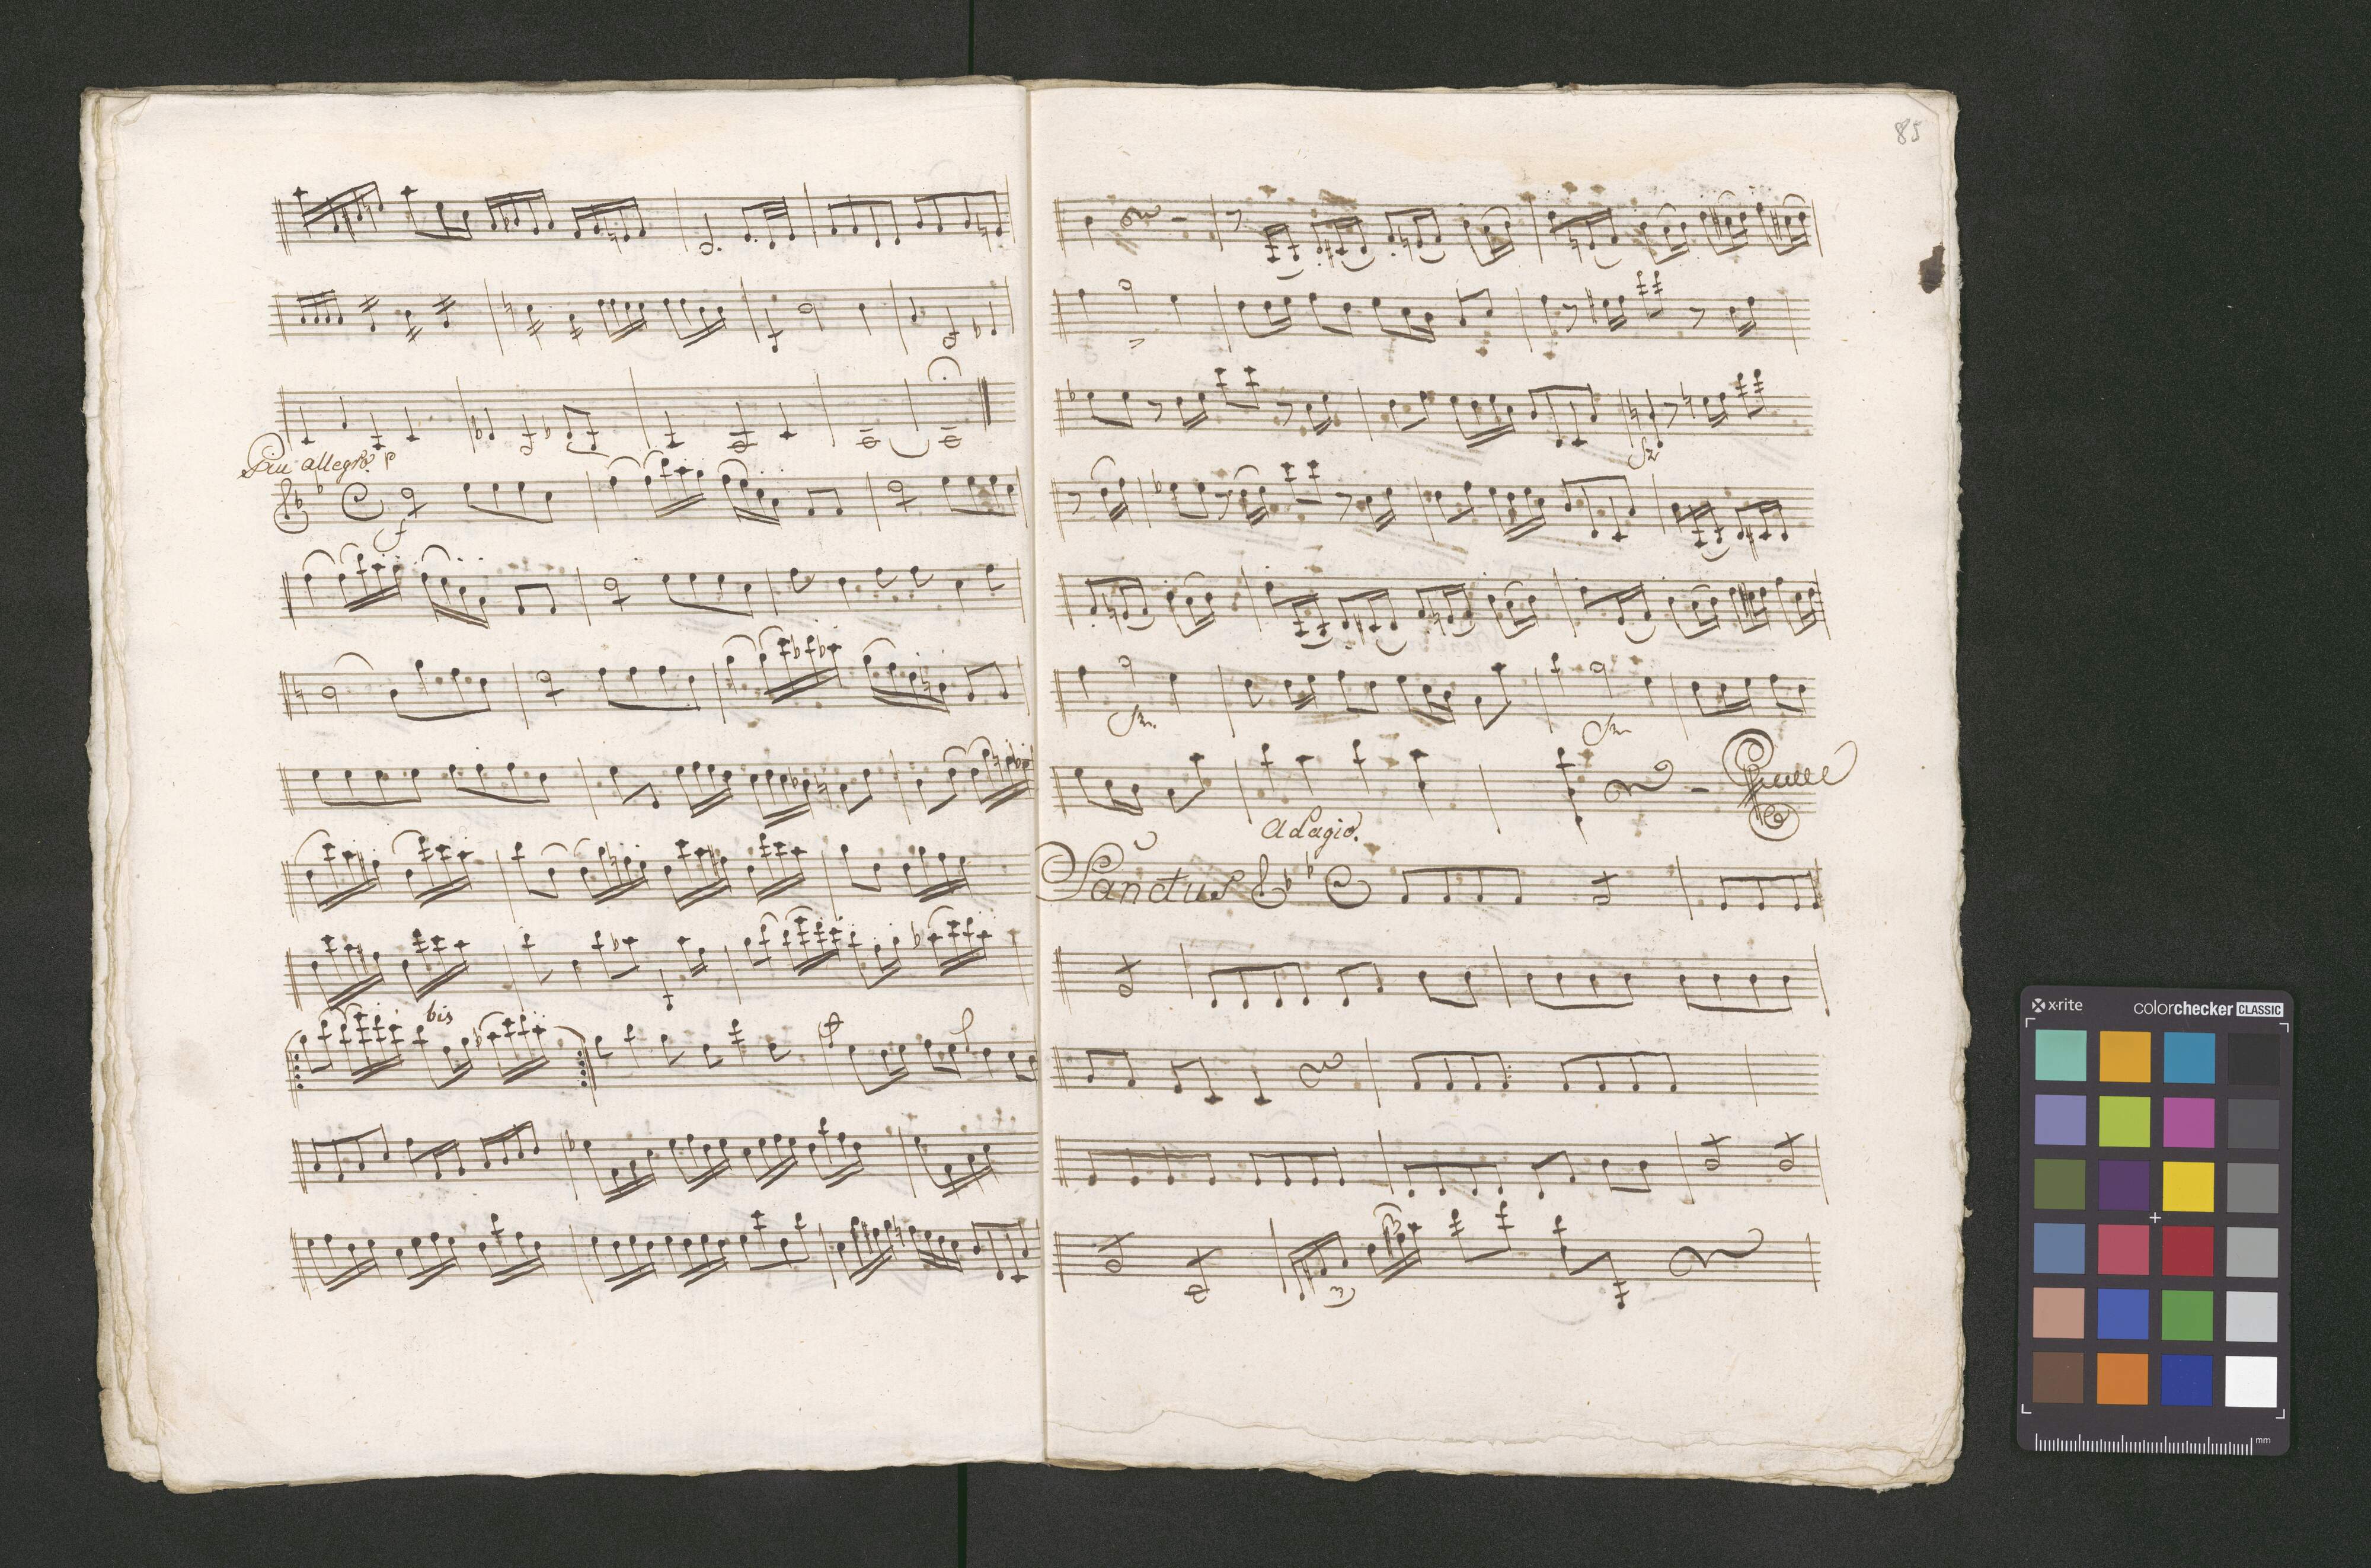 Piu allegro. p
f
bis
85
Sz
Adagio.
Sanctus
3
3
x-rite
colorchecker CLASSIC
mm